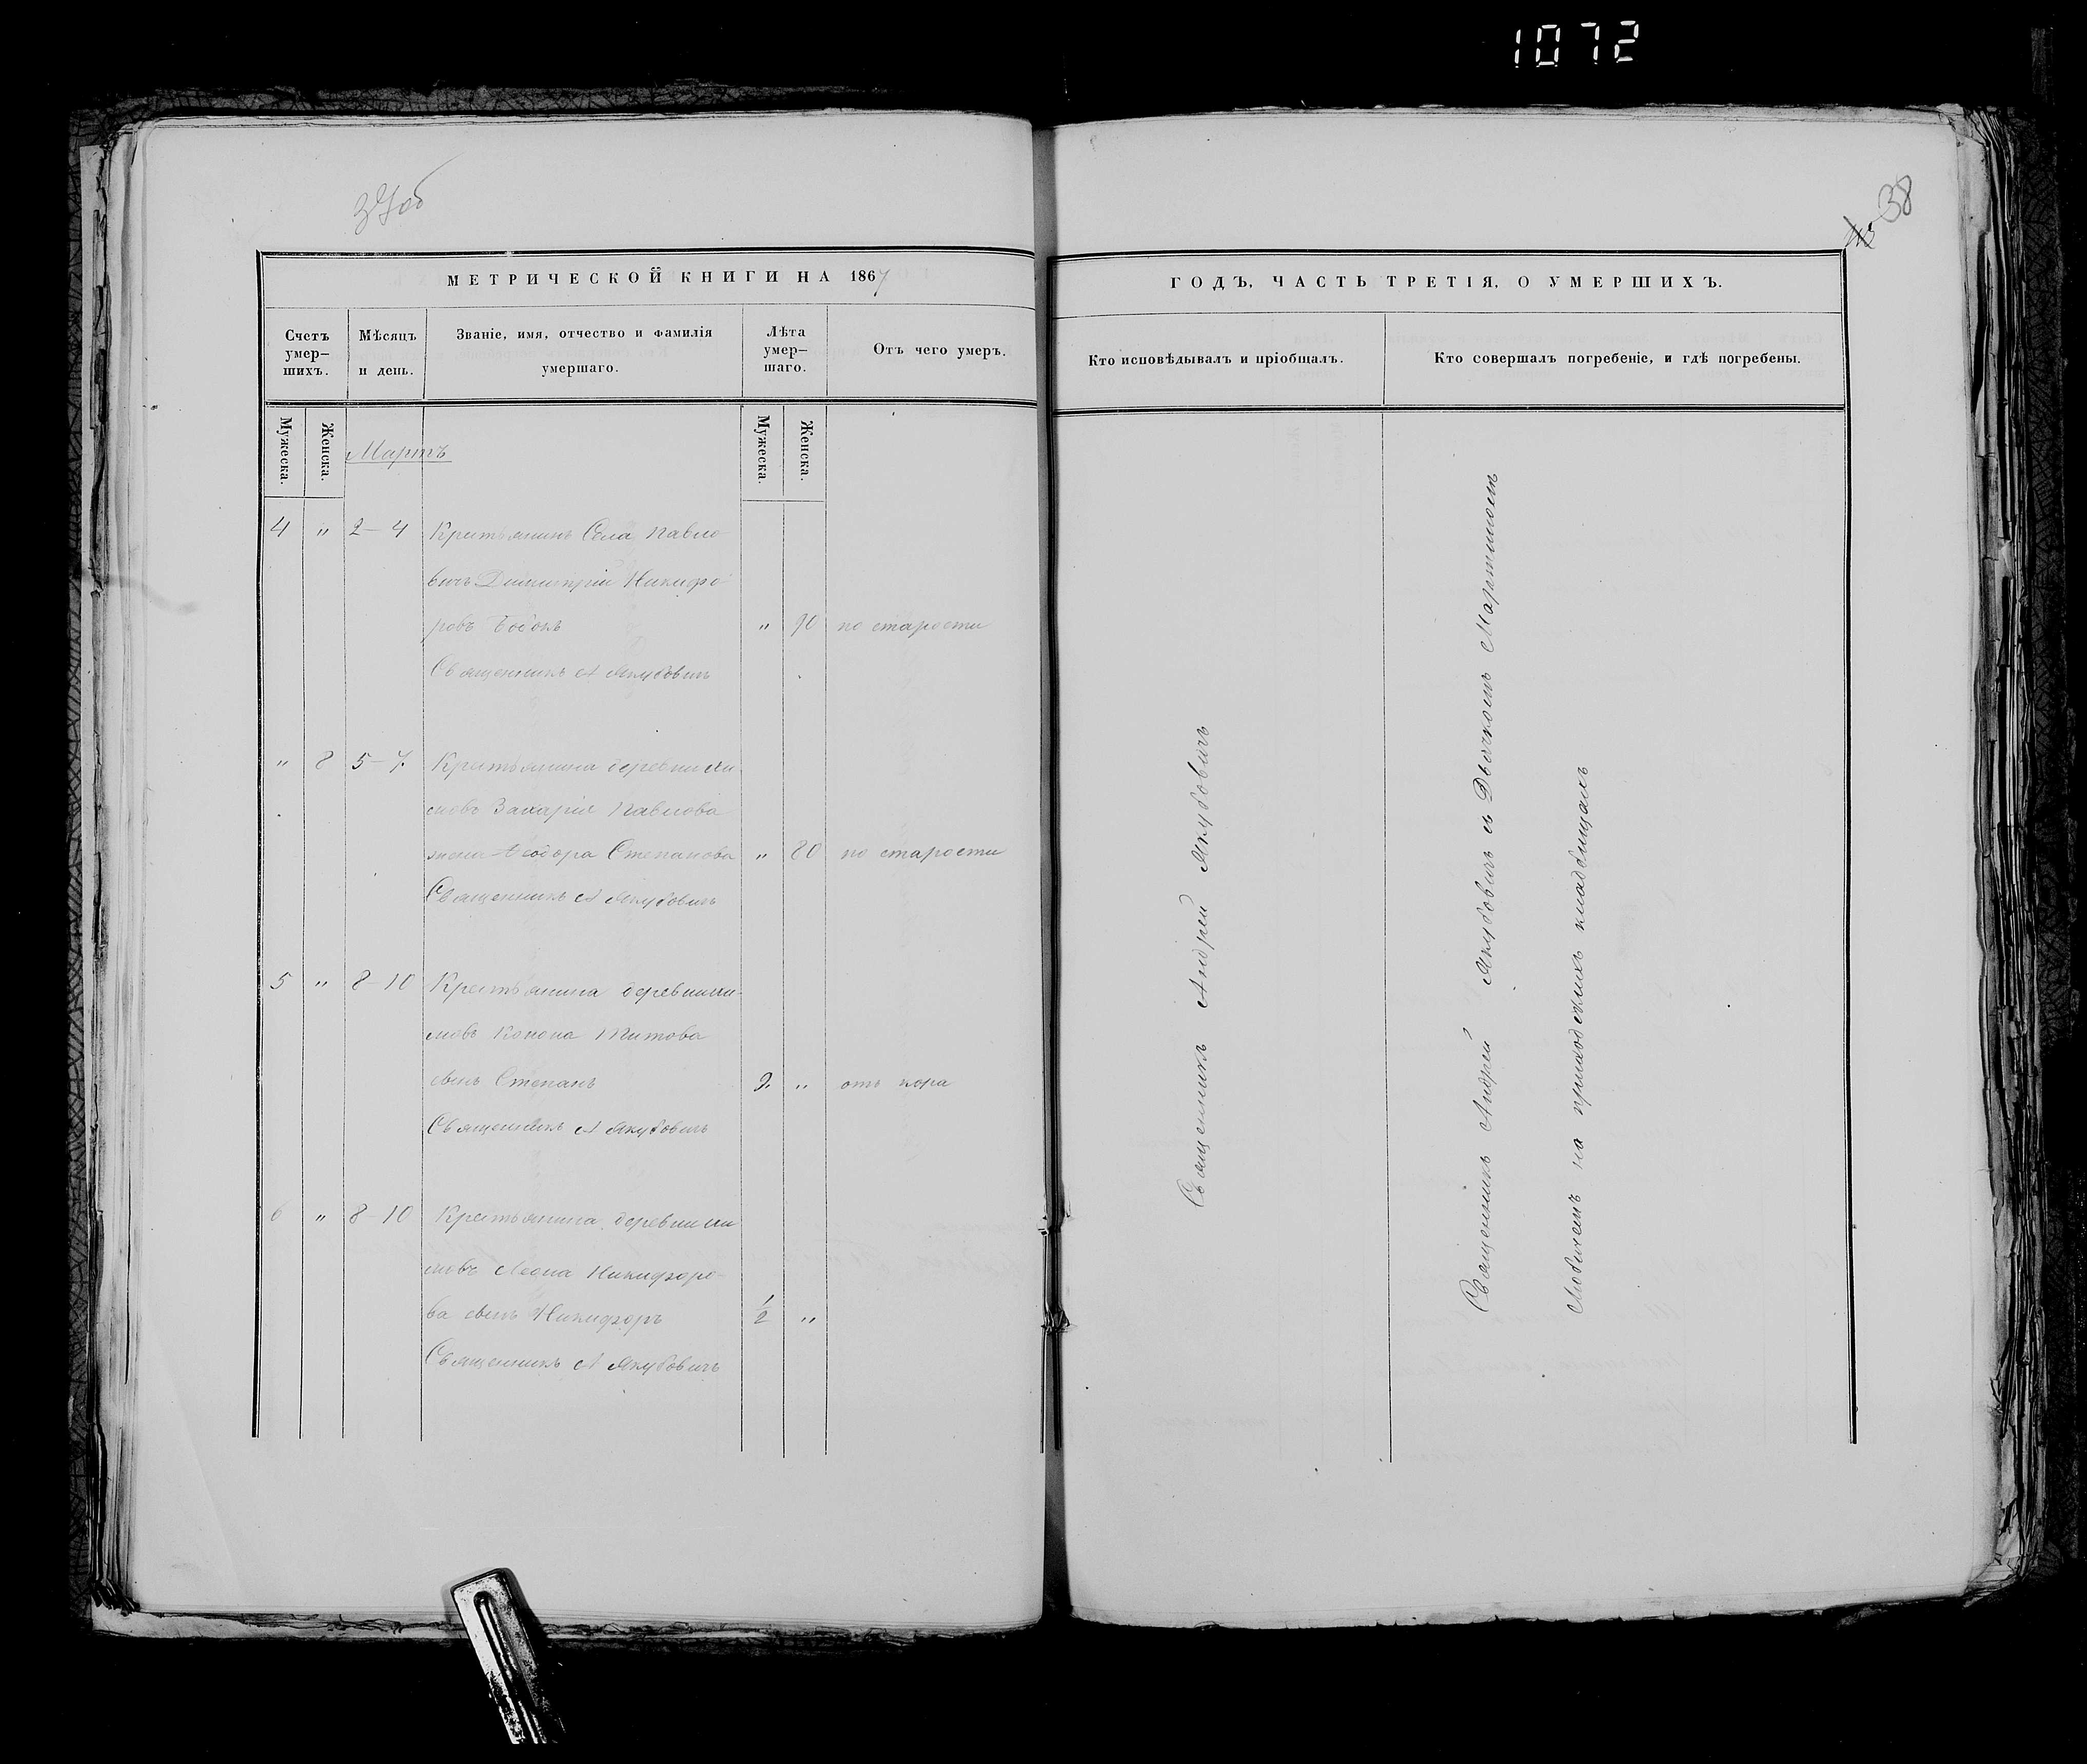 1072
37об
38
МЕТРИЧЕСКОЙ КНИГИ НА 1867
ГОДЪ, ЧАСТЬ ТРЕТІЯ, О УМЕРШИХЪ.
Счетъ умер–шихъ.
Мѣсяцъ и день.
Званіе, имя, отчество и фамилія умершаго.
Лѣта умер–шаго.
Отъ чего умеръ.
Кто исповѣдывалъ и пріобщалъ.
Кто совершалъ погребеніе, и гдѣ погребены.
Мужеска.
Женска.
Мартъ
Мужеска.
Женска.
4 " 2–4 Крестьянинъ Села Павло
вичъ Димитрій Никифо
ровъ " 90 по старости
Священникъ А Якубовичъ
" 8 5–7. Крестьянина деревни
Захарія Павлова
жена Ѳеодора Степанова " 80 по старости
Священникъ А Якубовичъ
5 " 8–10 Крестьянина деревни
Конона Титова
сынъ Степанъ 2. " отъ кора
Священникъ А Якубовичъ
6 " 8–10 Крестьянина деревни
Леона Никифоро-
ва сынъ Никифоръ 1/2 "
Священникъ А Якубовичъ
Священникъ Андрей Якубовичъ
Священникъ Андрей Якубовичъ съ Дьячкомъ Мартиномъ
на приходскихъ кладбищахъ